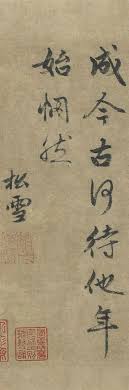 成今古何待他年
始惘然
松雪